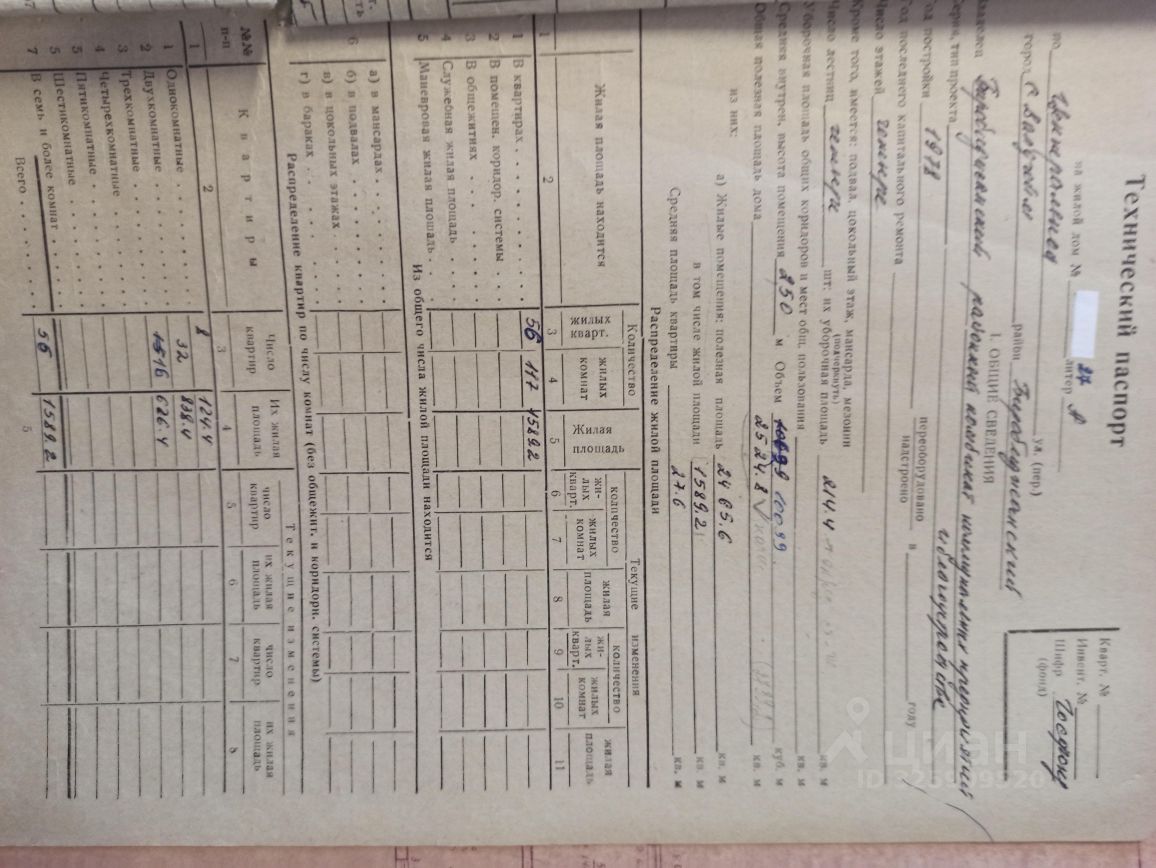 Технический паспорт
на жилой дом № 27 литер А
по Центральная ул. (пер)
город с Валдгейм район Биробиджанский
Кварт. №
Инвент. №
Шифр Госфонд
(фонд)
I. ОБЩИЕ СВЕДЕНИЯ
Владелец Биробиджанский районный комбинат коммунальных предприятий
и благоустройства
Серия, тип проекта
Год постройки 1978 переоборудовано в году
надстроено
Год последнего капитального ремонта
Число этажей четыре
Кроме того, имеется: подвал, цокольный этаж, мансарда, мезонин
(подчеркнуть)
Число лестниц четыре шт: их уборочная площадь 214.4 кв. м
Уборочная площадь общих коридоров и мест общ. пользования кв. м
Средняя внутрен. высота помещения 250 м Объем 10099 куб. м
Общая полезная площадь дома 2524.8 кв. м
из них:
а) Жилые помещения: полезная площадь 2465.6 кв. м
в том числе жилой площади 1589.2 кв. м
Средняя площадь квартиры 27.6 кв. м
Распределение жилой площади
Жилая площадь находится
Количество
жилых кварт.
жилых комнат
Жилая площадь
Текущие изменения
количество
жи-лых кварт.
жилых комнат
жилая площадь
количество
жи-лых кварт.
жилых комнат
жилая площадь
1 2 3 4 5 6 7 8 9 10 11
1 В квартирах 56 117 1589.2
2 В помещен. коридор. системы
3 В общежитиях
4 Служебная жилая площадь
5 Маневровая жилая площадь
Из общего числа жилой площади находится
6 а) в мансардах
б) в подвалах
в) в цокольных этажах
г) в бараках
Распределение квартир по числу комнат (без общежит. и коридорн. системы)
№№ п-п
Квартиры
Число квартир
Их жилая площадь
Текущие изменения
число квартир
их жилая площадь
число квартир
их жилая площадь
1 2 3 4 5 6 7 8
1 Однокомнатные 8 124.4
2 Двухкомнатные 32 838.4
3 Трехкомнатные 16 626.4
4 Четырехкомнатные
5 Пятикомнатные
5 Шестикомнатные
7 В семь и более комнат
Всего 56 1589.2
5
циан